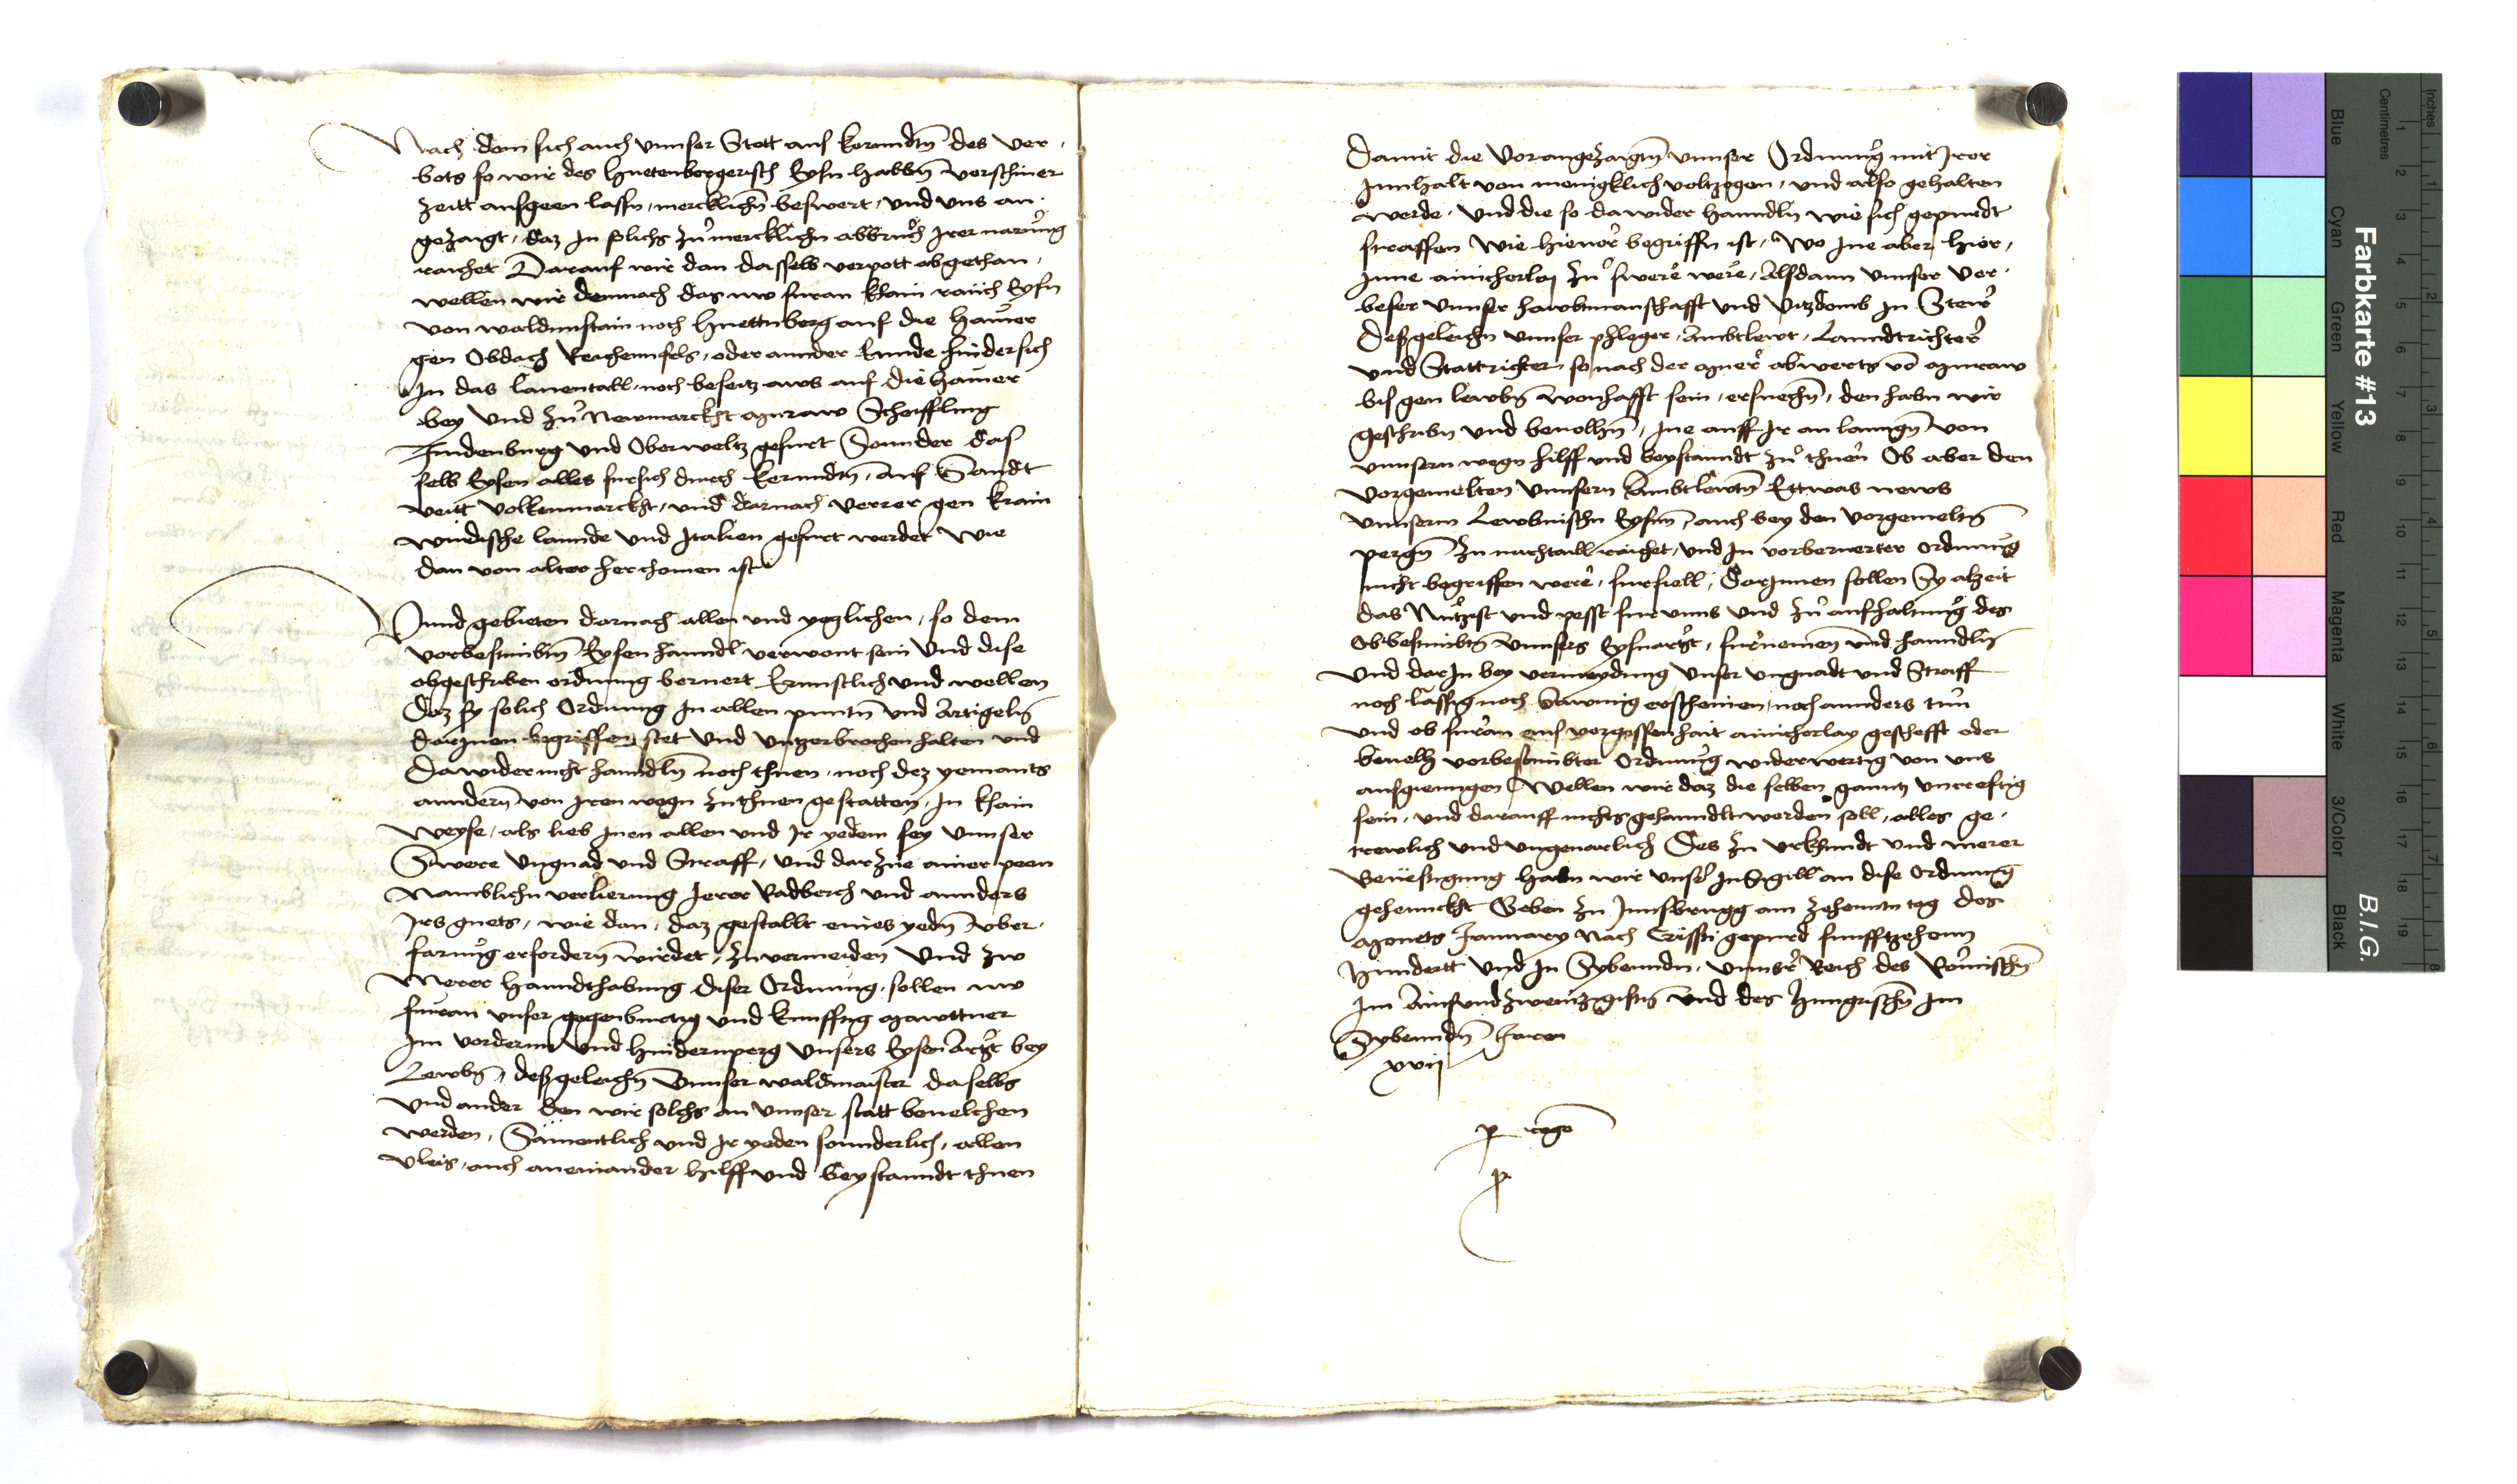 Nach dem sich auch vnnser Stett aus kernndtn des ver,
bots so wir des Huetenbergerisch Eysn habbn verschiner
Zeitt ausgeen lassn, mercklichn beswert, vnd vns an,
gezaigt, daz In solichs zu mercklichn abbruch Irer narung
raichet Darauf wir dan dasselb verpott abgethan,
wellen wir demnach das nw furan khain rauch Eysn
von waldnnstain noch Huettnberg auf die Hamer
gen Obdach Reichennfels, oder annder Ennde hindersich
In das lauentall, noch beseitz aws auf die hamer
bey vnd zu Newmarckht Muraw Scheiffling
Judenburg vnd Oberweltz gefurt Sonnder das
selb Eysen alles fursich durch kernndtn, auf Sandt
veitt volkenmarckht, vnd darnach verrer gen krain
windische lannde vnd Italien gefurt werdet Wie
dan von alter herchomen ist
Vnnd gebieten darnach allen vnd yegclichen, so dem
vorbestimbtn Eysen hanndl verwont sein vnd dise
obgeschriben ordnung beruert Ernnstlich vnd wellen
Daz sy solich Ordnung In allen puntn vnd Artigeln
darInen begriffen, stet vnd vntzerbrochen halten vnd
Dawider nicht hanndln noch thuen, noch dez yemants
anndern von Iren wegn zu thuen gestatten, In khain
weyse, als lieb Inen allen vnd Ir yedem sey vnnser
Swere vngnad vnd Straff, vnd darzue ainer peen
Namblichn verlierung Irer Radberch vnd annders
Irs guets, wie dan, daz gestallt eines yedn vber,
farung erfordern wirdet, zu vermeiden Vnd zw
Merer Hanndthabung diser Ordnung, sollen nw
furan vnser gegenburtig vnd kunfftig Mawttner
Im vordernn vnd Hindernperg vnsers Eysen Artzt bey
Lewbn, deßgeleichn vnnser waldmaister daselbs
vnd ander den wir solchs an vnnser statt beuelchen
werden, Sämentlich vnd Ir yeden sonnderlich, allen
vleis, auch aneinander hilff vnd beystanndt thuen
Damit die vorangezaigtn vnnser Ordnung mit Irer
Innhalt von menigklich voltzogen, vnd also gehalten
werde, vnd die so dawider hanndln wie sich gepurdt
straffen Wie hieuor begriffn ist, Wo Ine aber hier,
Inne ainicherley zu swere were, Alsdann vnnser ver,
beser vnnser hawbtmanschafft vnd vitzdomb In Steir
Deßgeleichn vnnser phleger, Ambtlewt, Lanndtrichter
vnd Stattrichter, so nach der Muer abwerts vo Muraw
bis gen lewbn wonhafft sein, ersuechn, den habn wir
geschribn vnd beuolhn, Ine auff Ir an lanngn von
vnnsern wegn hilff vnd beystanndt zu thuen Ob aber den
vorgemelten vnnsern Ambtlewtn Ettwas news
vnnserm Lewbnischn Eysnn, auch bey den vorgemeltn
pergn zu nachtaill raichet, vnd In vorberuerter ordnung
nicht begriffen were, furfiell, DarInnen sollen Sy alzeit
das Nutzist vnd pesst fur vnns vnd zu aufhaltung des
Obbestimbtn vnnsers Eysnartzt, furnemen vnd hanndln
vnd darIn bey vermeydung vnser vngnadt vnd Straff
noch lässig noch Sawmig erscheinen, noch annders tun
vnd ob furan aus vergessenhait ainicherlay geschefft oder
beuelh vorbestimbter Ordnung widerwertig von vns
ausgiengen Wellen wir daz die selben ganntz vncrefftig
sein, vnd darauff nichts gehanndlt werden soll, alles ge,
trewlich vnd vngeuarlich Des zu vrkhundt vnd merer
Beuestigung habn wir vnser InSigill an dise Ordnung
gehennckht Geben zu Innsbrugg am zehenntn tag des
Monets January Nach Cristi gepurd funfftzehenn
Hundertt vnd In Sybenndn, vnnsrr Reich des Romischn
Im Ainsvndzwenntzigistn vnd des Hungrischn Im
Sybenndn Jaren
xvij
p rege
p
Farbkarte #13
B.I.G.
Inches
Centimetres
1 2 3 4 5 6 7 8 9 10 11 12 13 14 15 16 17 18 19
1 2 3 4 5 6 7 8
Blue
Cyan
Green
Yellow
Red
Magenta
White
3/Color
Black